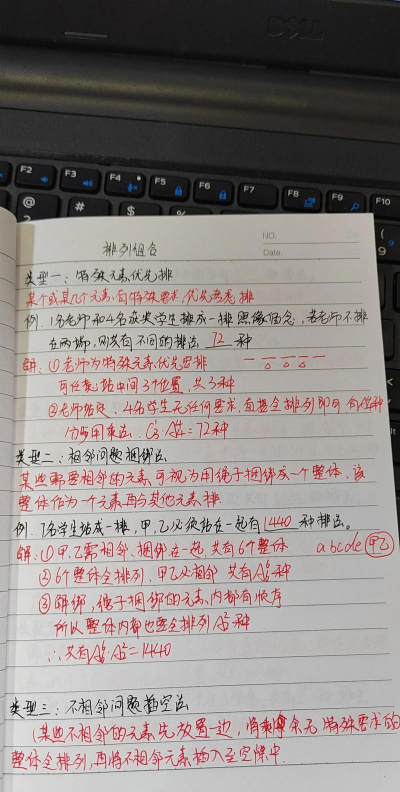 DELL
F2
F3
F4
F5
F6
F7
F8
F9
F10
@
2
#
$
%
^
&
*
(
9
排列组合
NO.
Date.
类型一：特殊元素优先排
某个或某几个元素有特殊要求，优先考虑排
例．1名老师和4名获奖学生排成一排照像留念，若老师不排
在两端，则共有不同的排法 72 种
解：①老师为特殊元素优先思排
可任意站中间3个位置，共3种
②老师站定，4名学生无任何要求，直接全排列即可，有A44种
分步用乘法．C13·A44=72种
类型二：相邻问题捆绑法
某些需要相邻的元素，可视为用绳子捆绑成一个整体，该
整体作为一个元素再与其他元素排
例．7名学生站成一排，甲、乙必须站在一起有 1440 种排法。
解：①甲、乙需相邻、捆绑在一起，共有6个整体 abcde 甲乙
②6个整体全排列，甲乙必相邻 共有A66种
③解绑，绳子捆绑的元素内部有顺序
所以整体内部也要全排列A22种
∴共有A66·A22=1440
类型三：不相邻问题插空法
（某些不相邻的元素先放置一边，将剩余无特殊要求的
整体全排列，再将不相邻元素插入至空隙中